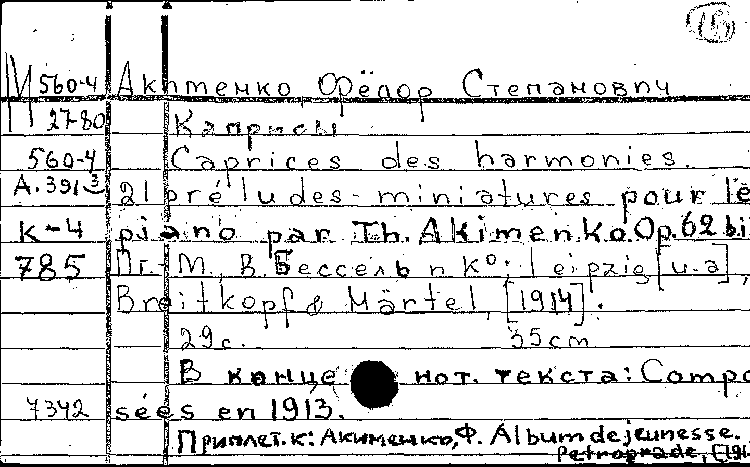 М 560-4 Акименко, Фёдор Степанович
27-80 Капризы
560-4 Caprices des harmonies.
А.391 3 21 préludes-miniatures pour le
К-4 piano par Th. Akimenko. Op. 62 bi
785 Пг.-М., В. Бессель и К°; Leipzig [u.a],
Breitkopf & Härtel, [1914].
29 с. 35 cm
В конце нот. текста: Compo
7342 sées en 1913.
Приплет. к: Акименко, Ф. Album de jeunesse.
Petrograde, [191